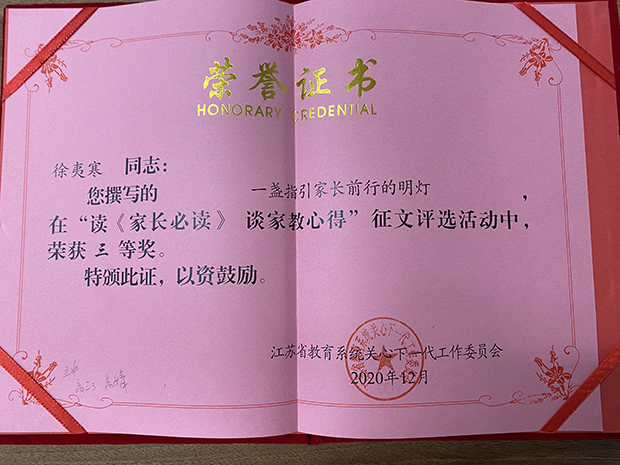 荣誉证书
HONORARY CREDENTIAL
徐夷寒 同志：
您撰写的 一盏指引家长前行的明灯，
在“读《家长必读》 谈家教心得”征文评选活动中，
荣获 三 等奖。
特颁此证，以资鼓励。
江苏省教育系统关心下一代工作委员会
2020年12月